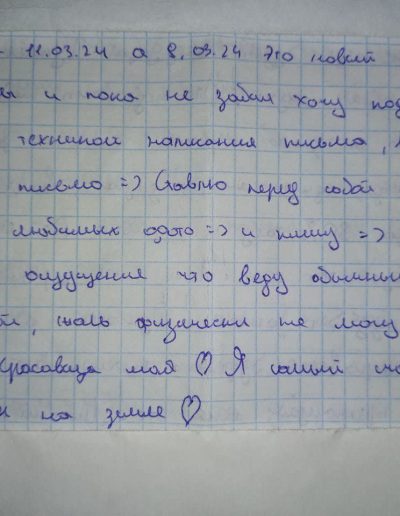 11.03.24 а 8.03.24 Это новый
и пока не забыл хочу под
техникой написания письма,
письмо => Ставлю перед собой
любимых фото => и пишу =>
ощущение что веду обычный
, жаль физически не могу
Красавица моя ♡ Я самый сча
на земле ♡